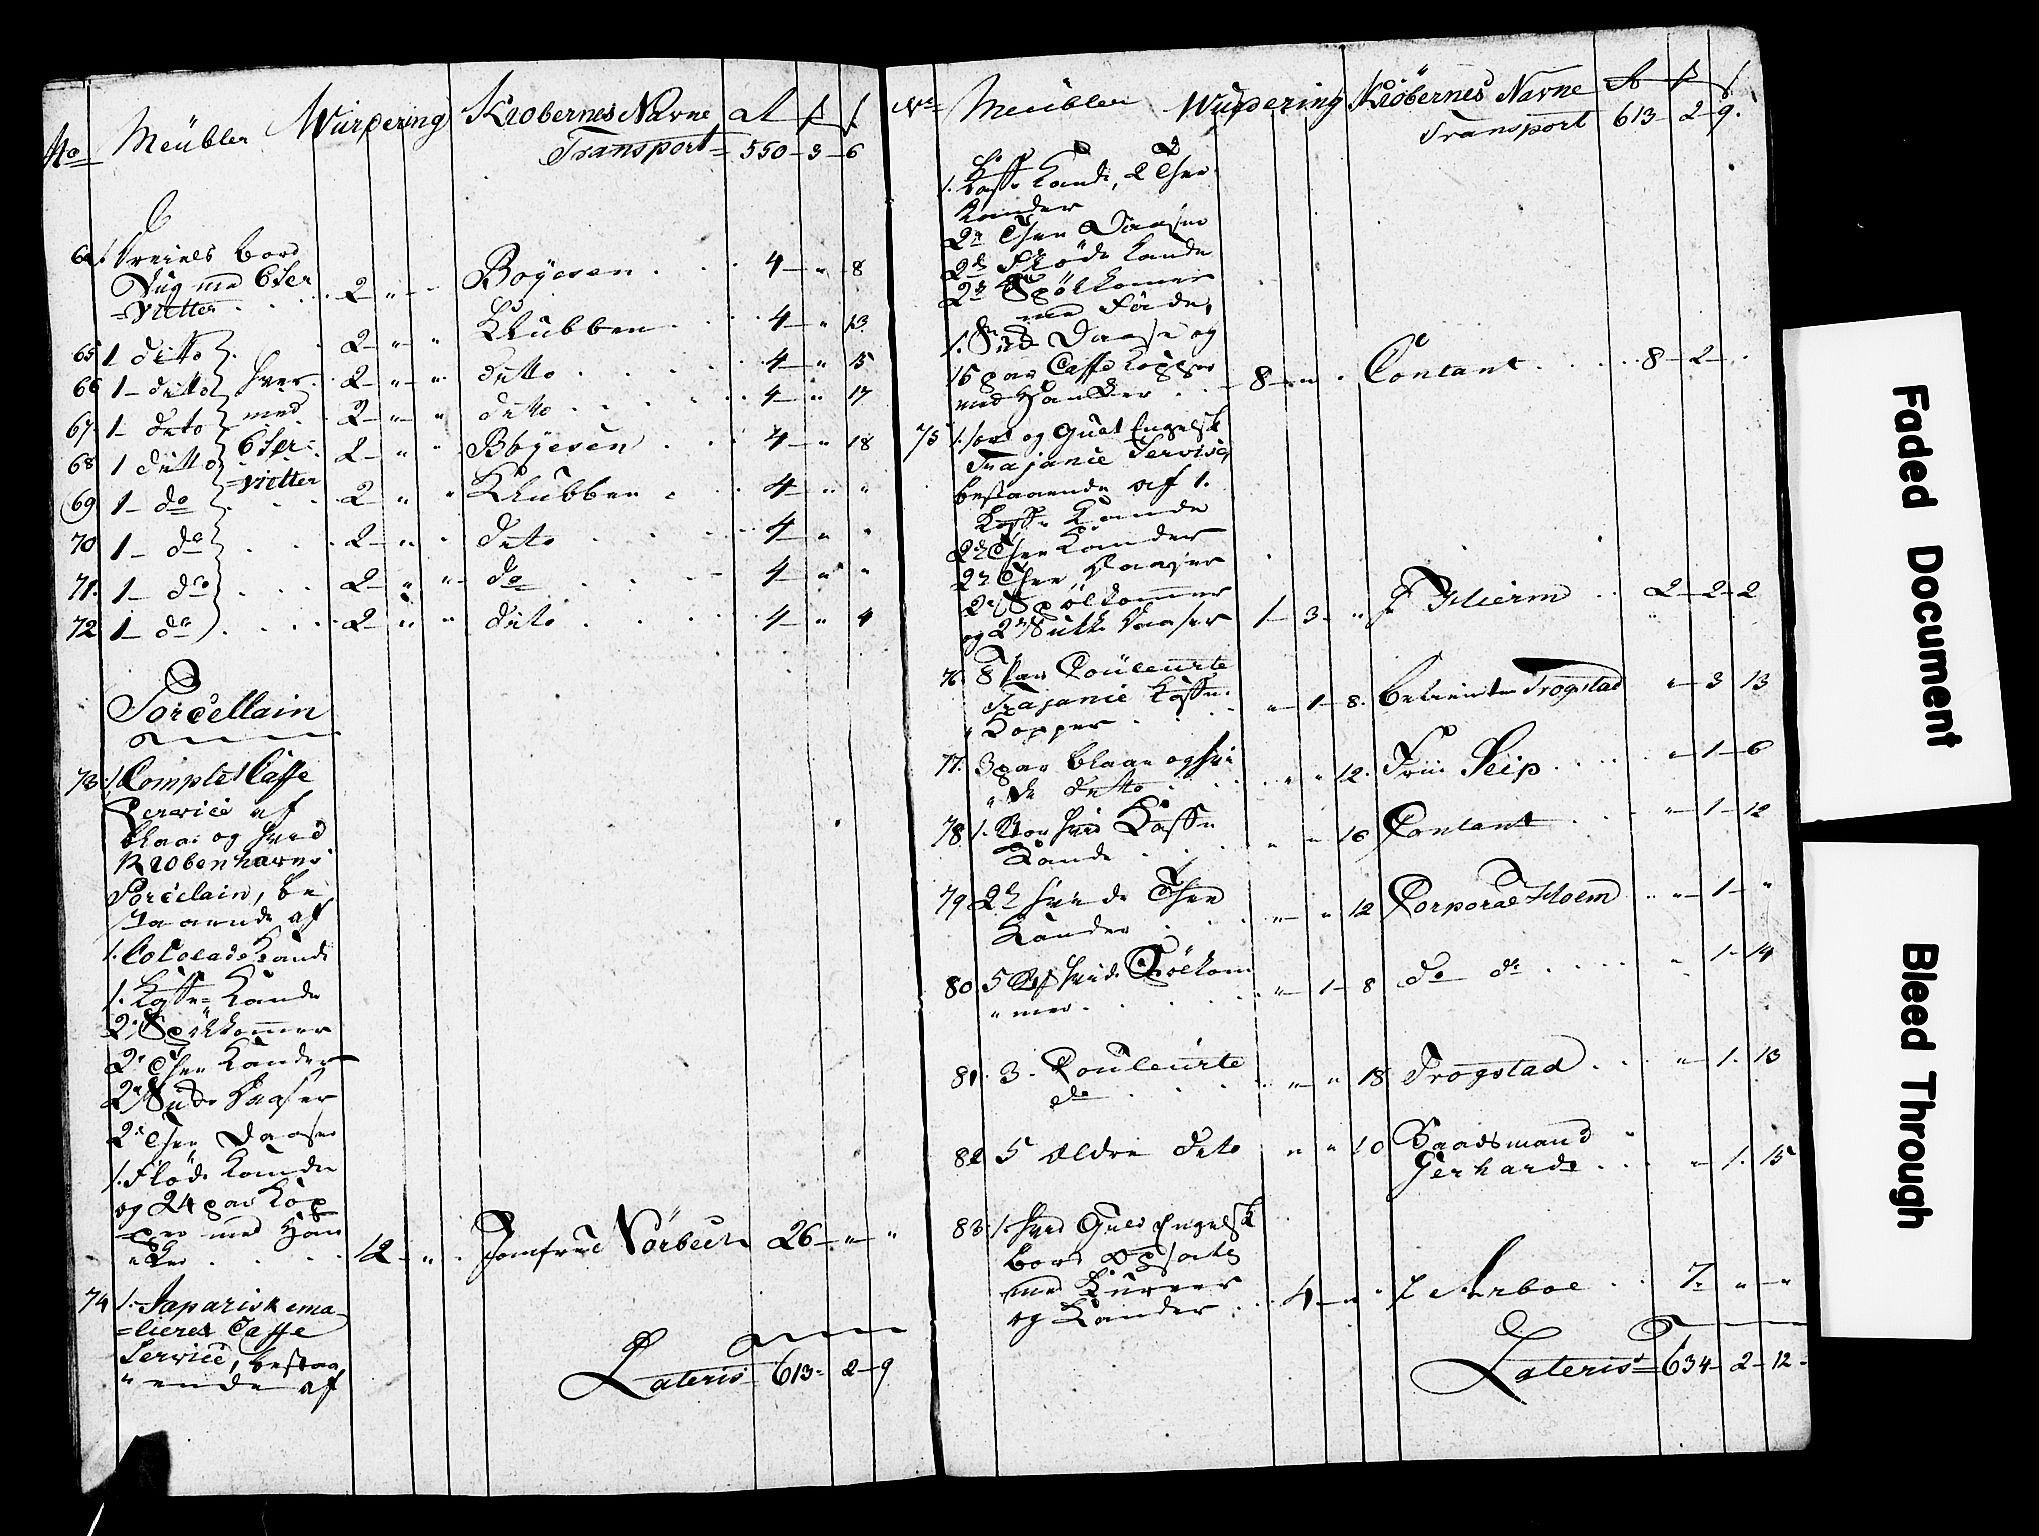 No Meübler Würdering Kiobernes Navne
Transport 550 - 3 - 6
64 1 Dreiels bord
Dug med 6 Ser
=vietter 2 " Boÿesen 4 - " 8
65 1 ditto 2 " " Klubben 4 - " 13
66 1 ditto hver 2 " " ditto 4 - " 15
67 1 dito med 2 " " dito 4 " 17
68 1 ditto 6 Ser= 2 " " Boÿesen 4 " 18
=vietter
69 1 do 2 " " Klubben 4 " "
70 1 do 2 " " dito 4 " "
71 1 do 2 " " do 4 " "
72 1 do 2 " " dito 4 " 4
Porcellain
73 1 Complet Caffe
Service af
blaae og hvid
Kiobenhavns
Porcelain, be
staaende af
1. Cocolade Kande
1. Kaffe=Kande
2 Spölkommer
2 Thee Kander
2 Daaser
2 Thee Daaser
1. Flöde Kande
og 24 par Kop
=per med Han
ker 12 " Jomfrue Nörbech 26 " "
74 1. Japanisk ema
=lieret Caffe
Service, bestaa
" ende af
Lateris 613 - 2 - 9
No Meübler Würdering Kiöbernes Navne
Transport 613 - 2 - 9.
1. Kaffe Kande, 2 Thee
Kander
2 Thee Daaser
2 Flöde Kande
2 Spölkommer
med Fade,
1. Daase og
16 par Caffe Kopper
med Hanker 8 " Contant 8 - 2
75 1. sort og Guel Engelsk
Trajanie Servise,
bestaaende af 1.
Kaffe Kande
2 Thee Kander
2 Thee Daaser
2 Spölkommer
og 2 Daaser 1 - 3 - " 2 - 2 - 2
76 8 par Couleurte
Trajanie Kaffe
" Kopper " - 1 - 8. betiente Trogstad " 3 13
77. 3 par blaae og hvi
" de ditto " " 12. Frü Seip " 1 - 6
78 1. Stor hvid Kaffe
Kande " " 16 Contant " 1 - 12
79 2 hvide Thee
Kander " " 12 Corporal Holm " 1 - "
80 5 hvide Spölkom
" mer " - 1 - 8 do do " 1 - 14
81. 3. Couleurte
do " " 18 Trogstad " 1. 13
82 5 ældre dito " " 10 Baadsmand
Gerhard " 1. 15
83 1. hvid Guld Engelsk
bord opsats
med Kurver
og Kander 4 " " Arboe 7. " "
Lateris 634 - 2 - 12
Faded Document
Bleed Through